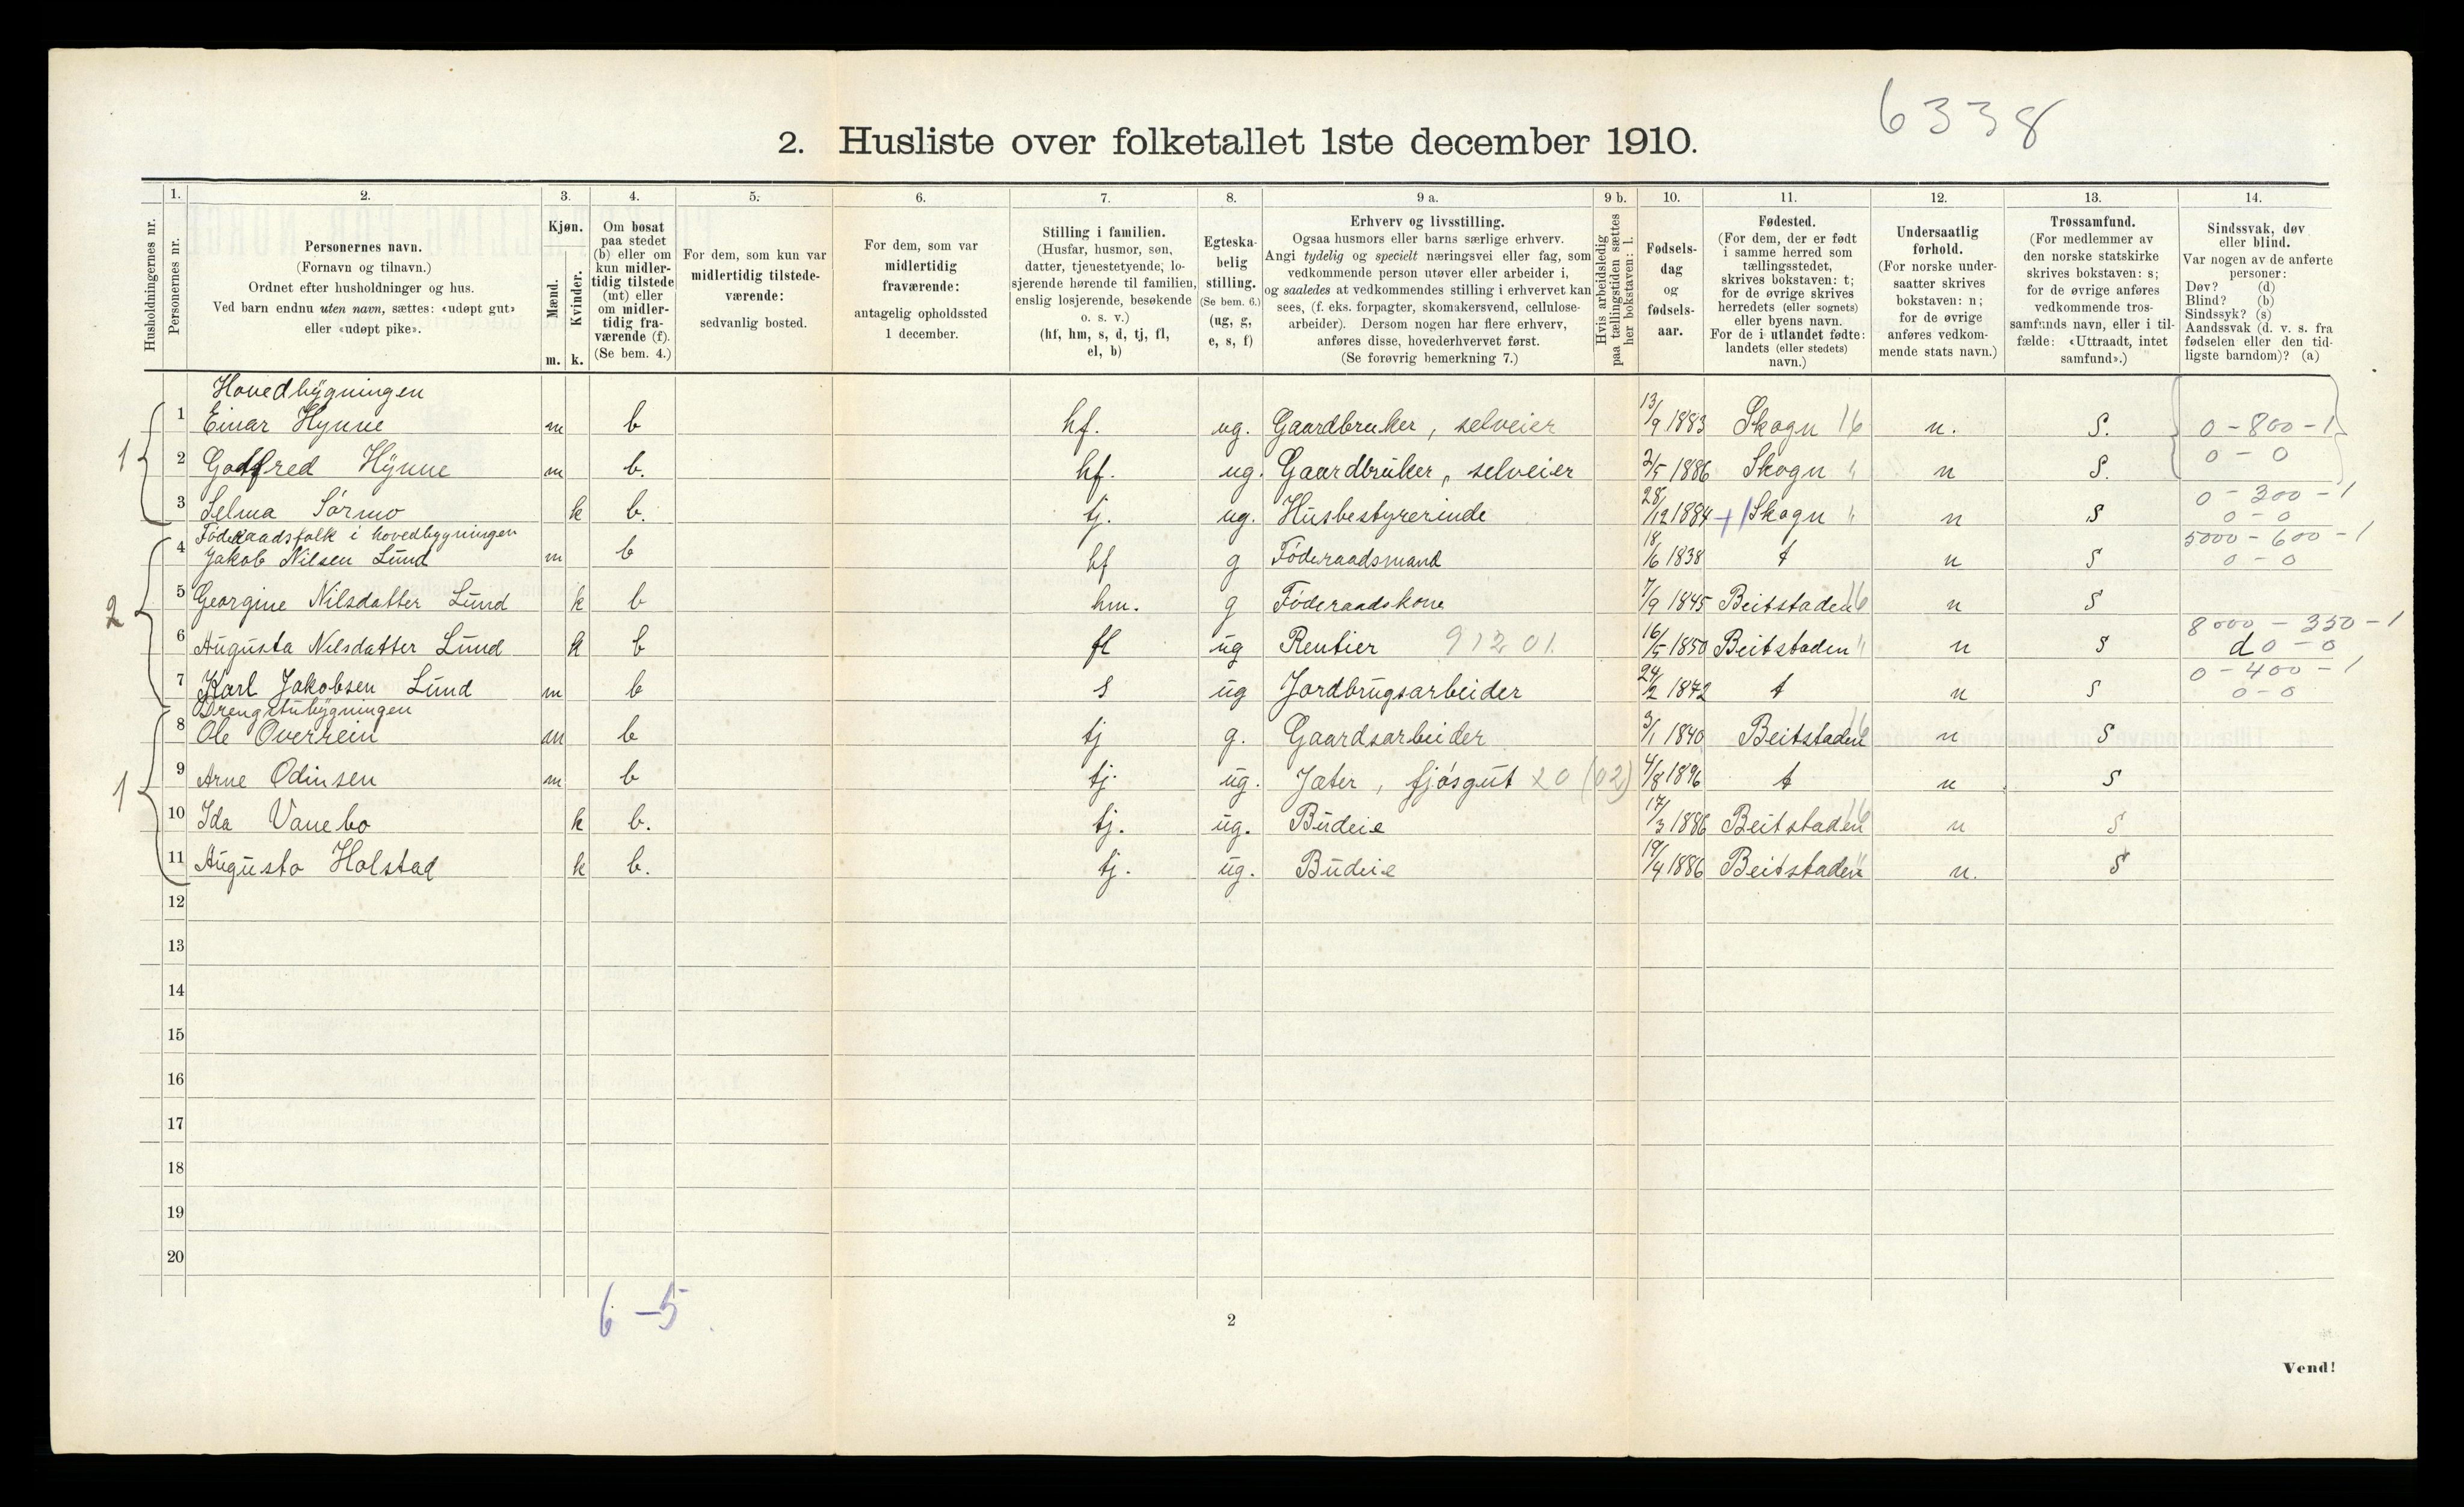 6338
2. Husliste over folketallet 1ste december 1910.
Husholdningernes nr.
1.
Personernes nr.
2.
Personernes navn.
(Fornavn og tilnavn.)
Ordnet efter husholdninger og hus.
Ved barn endnu uten navn, sættes: «udøpt gut»
eller «udøpt pike».
3.
Kjøn.
Mænd.
Kvinder.
m. k.
4.
Om bosat
paa stedet
(b) eller om
kun midler-
tidig tilstede
(mt) eller
om midler-
tidig fra-
værende (f).
(Se bem. 4.)
5.
For dem, som kun var
midlertidig tilstede-
værende:
sedvanlig bosted.
6.
For dem, som var
midlertidig
fraværende:
antagelig opholdssted
1 december.
7.
Stilling i familien.
(Husfar, husmor, søn,
datter, tjenestetyende, lo-
sjerende hørende til familien,
enslig losjerende, besøkende
o. s. v.)
(hf, hm, s, d, tj, fl,
el, b)
8.
Egteska-
belig
stilling.
(Se bem. 6.)
(ug, g,
e, s, f)
9 a.
Erhverv og livsstilling.
Ogsaa husmors eller barns særlige erhverv.
Angi tydelig og specielt næringsvei eller fag, som
vedkommende person utøver eller arbeider i,
og saaledes at vedkommendes stilling i erhvervet kan
sees, (f. eks. forpagter, skomakersvend, cellulose-
arbeider). Dersom nogen har flere erhverv,
anføres disse, hovederhvervet først.
(Se forøvrig bemerkning 7.)
9 b.
Hvis arbeidsledig
paa tællingstiden sættes
her bokstaven: l.
10.
Fødsels-
dag
og
fødsels-
aar.
11.
Fødested.
(For dem, der er født
i samme herred som
tællingsstedet,
skrives bokstaven: t;
for de øvrige skrives
herredets (eller sognets)
eller byens navn.
For de i utlandet fødte:
landets (eller stedets)
navn.)
12.
Undersaatlig
forhold.
(For norske under-
saatter skrives
bokstaven: n;
for de øvrige
anføres vedkom-
mende stats navn.)
13.
Trossamfund.
(For medlemmer av
den norske statskirke
skrives bokstaven: s;
for de øvrige anføres
vedkommende tros-
samfunds navn, eller i til-
fælde: «Uttraadt, intet
samfund».)
14.
Sindssvak, døv
eller blind.
Var nogen av de anførte
personer:
Døv? (d)
Blind? (b)
Sindssyk? (s)
Aandssvak (d. v. s. fra
fødselen eller den tid-
ligste barndom)? (a)
Hovedbygningen
1 1 Einar Hynne m b hf. ug. Gaardbruker, selveier 13/9 1883 Skogn 16 n. S. 0-800-1
2 Godfred Hynne m b. hf. ug. Gaardbruker, selveier 2/5 1886 Skogn " n S. 0-0
3 Selma Sørmo k b. tj. ug. Husbestyrerinde 28/12 1884 Skogn " n S 0-300-1
0-0
Føderaadsfolk i hovedbygningen
2 4 Jakob Nilsen Lund m b hf g Føderaadsmand 18/6 1838 t n S 5000-600-1
0-0
5 Georgine Nilsdatter Lund k b hm. g Føderaadskone 7/9 1845 Beitstaden 16 n S
6 Augusta Nilsdatter Lund k b fl ug Rentier 91201. 16/5 1850 Beitstaden " n S 8000-350-1
d 0-0
7 Karl Jakobsen Lund m b s ug Jordbrugsarbeider 24/2 1872 t n S 0-400-1
0-0
Drengstubygningen
1 8 Ole Overrein m b tj g. Gaardsarbeider 3/1 1840 Beitstaden 16 n S
9 Arne Odinsen m b tj. ug. Jæter, fjøsgut 20 (02) 4/8 1896 t n S
10 Ida Vanebo k b. tj. ug. Budeie 17/3 1886 Beitstaden 16 n S
11 Augusta Holstad k b. tj. ug. Budeie 19/4 1886 Beitstaden " n. S
12
13
14
15
16
17
18
19
20
6-5.
2
Vend!